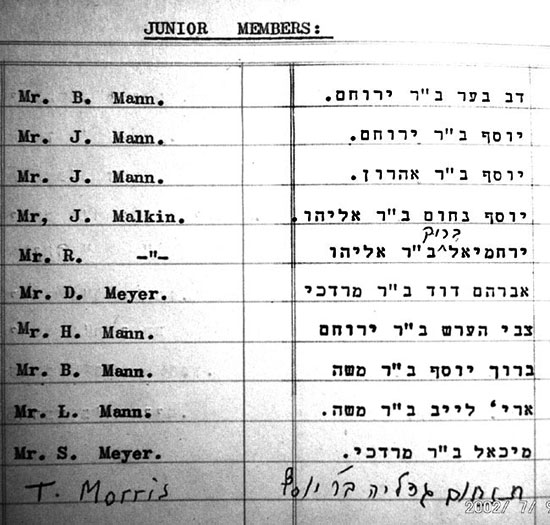 JUNIOR MEMBERS:
Mr. B. Mann. דב בער ב"ר ירוחם.
Mr. J. Mann. יוסף ב"ר ירוחם.
Mr. J. Mann. יוסף ב"ר אהרון.
Mr, J. Malkin. יוסף נחום ב"ר אליהו.
ברוך
Mr. R. -"- ירחמיאל^ב"ר אליהו
Mr. D. Meyer. אברהם דוד ב"ר מרדכי
Mr. H. Mann. צבי הערש ב"ר ירוחם
Mr. B. Mann. ברוך יוסף ב"ר משה
Mr. L. Mann. ארי' לייב ב"ר משה.
Mr. S. Meyer. מיכאל ב"ר מרדכי.
T. Morris תנחום גדליה ב"ר יוסף
2002/ 7/ 9